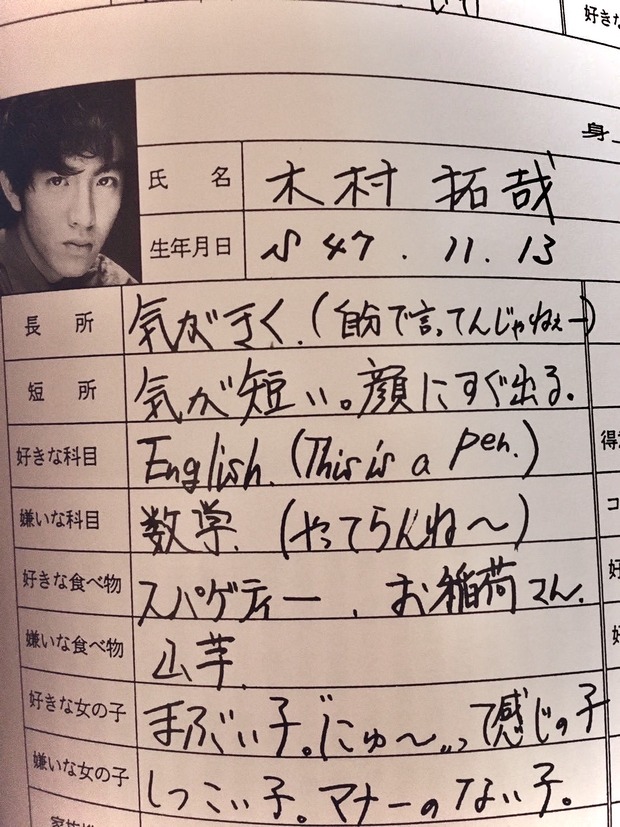 好き
身
氏 名 木村 拓哉
生年月日 S 47 . 11 . 13
長 所 気がきく.(自分で言ってんじゃねぇー)
短 所 気が短い。顔にすぐ出る。
好きな科目 English. (This is a pen.)
得
嫌いな科目 数学. (やってらんね〜)
コ
好きな食べ物 スパゲティー . お稲荷さん.
好
嫌いな食べ物 山芋.
好
好きな女の子 まぶい子。"にゅ〜"って感じの子
嫌いな女の子 しつこい子。マナーのない子。